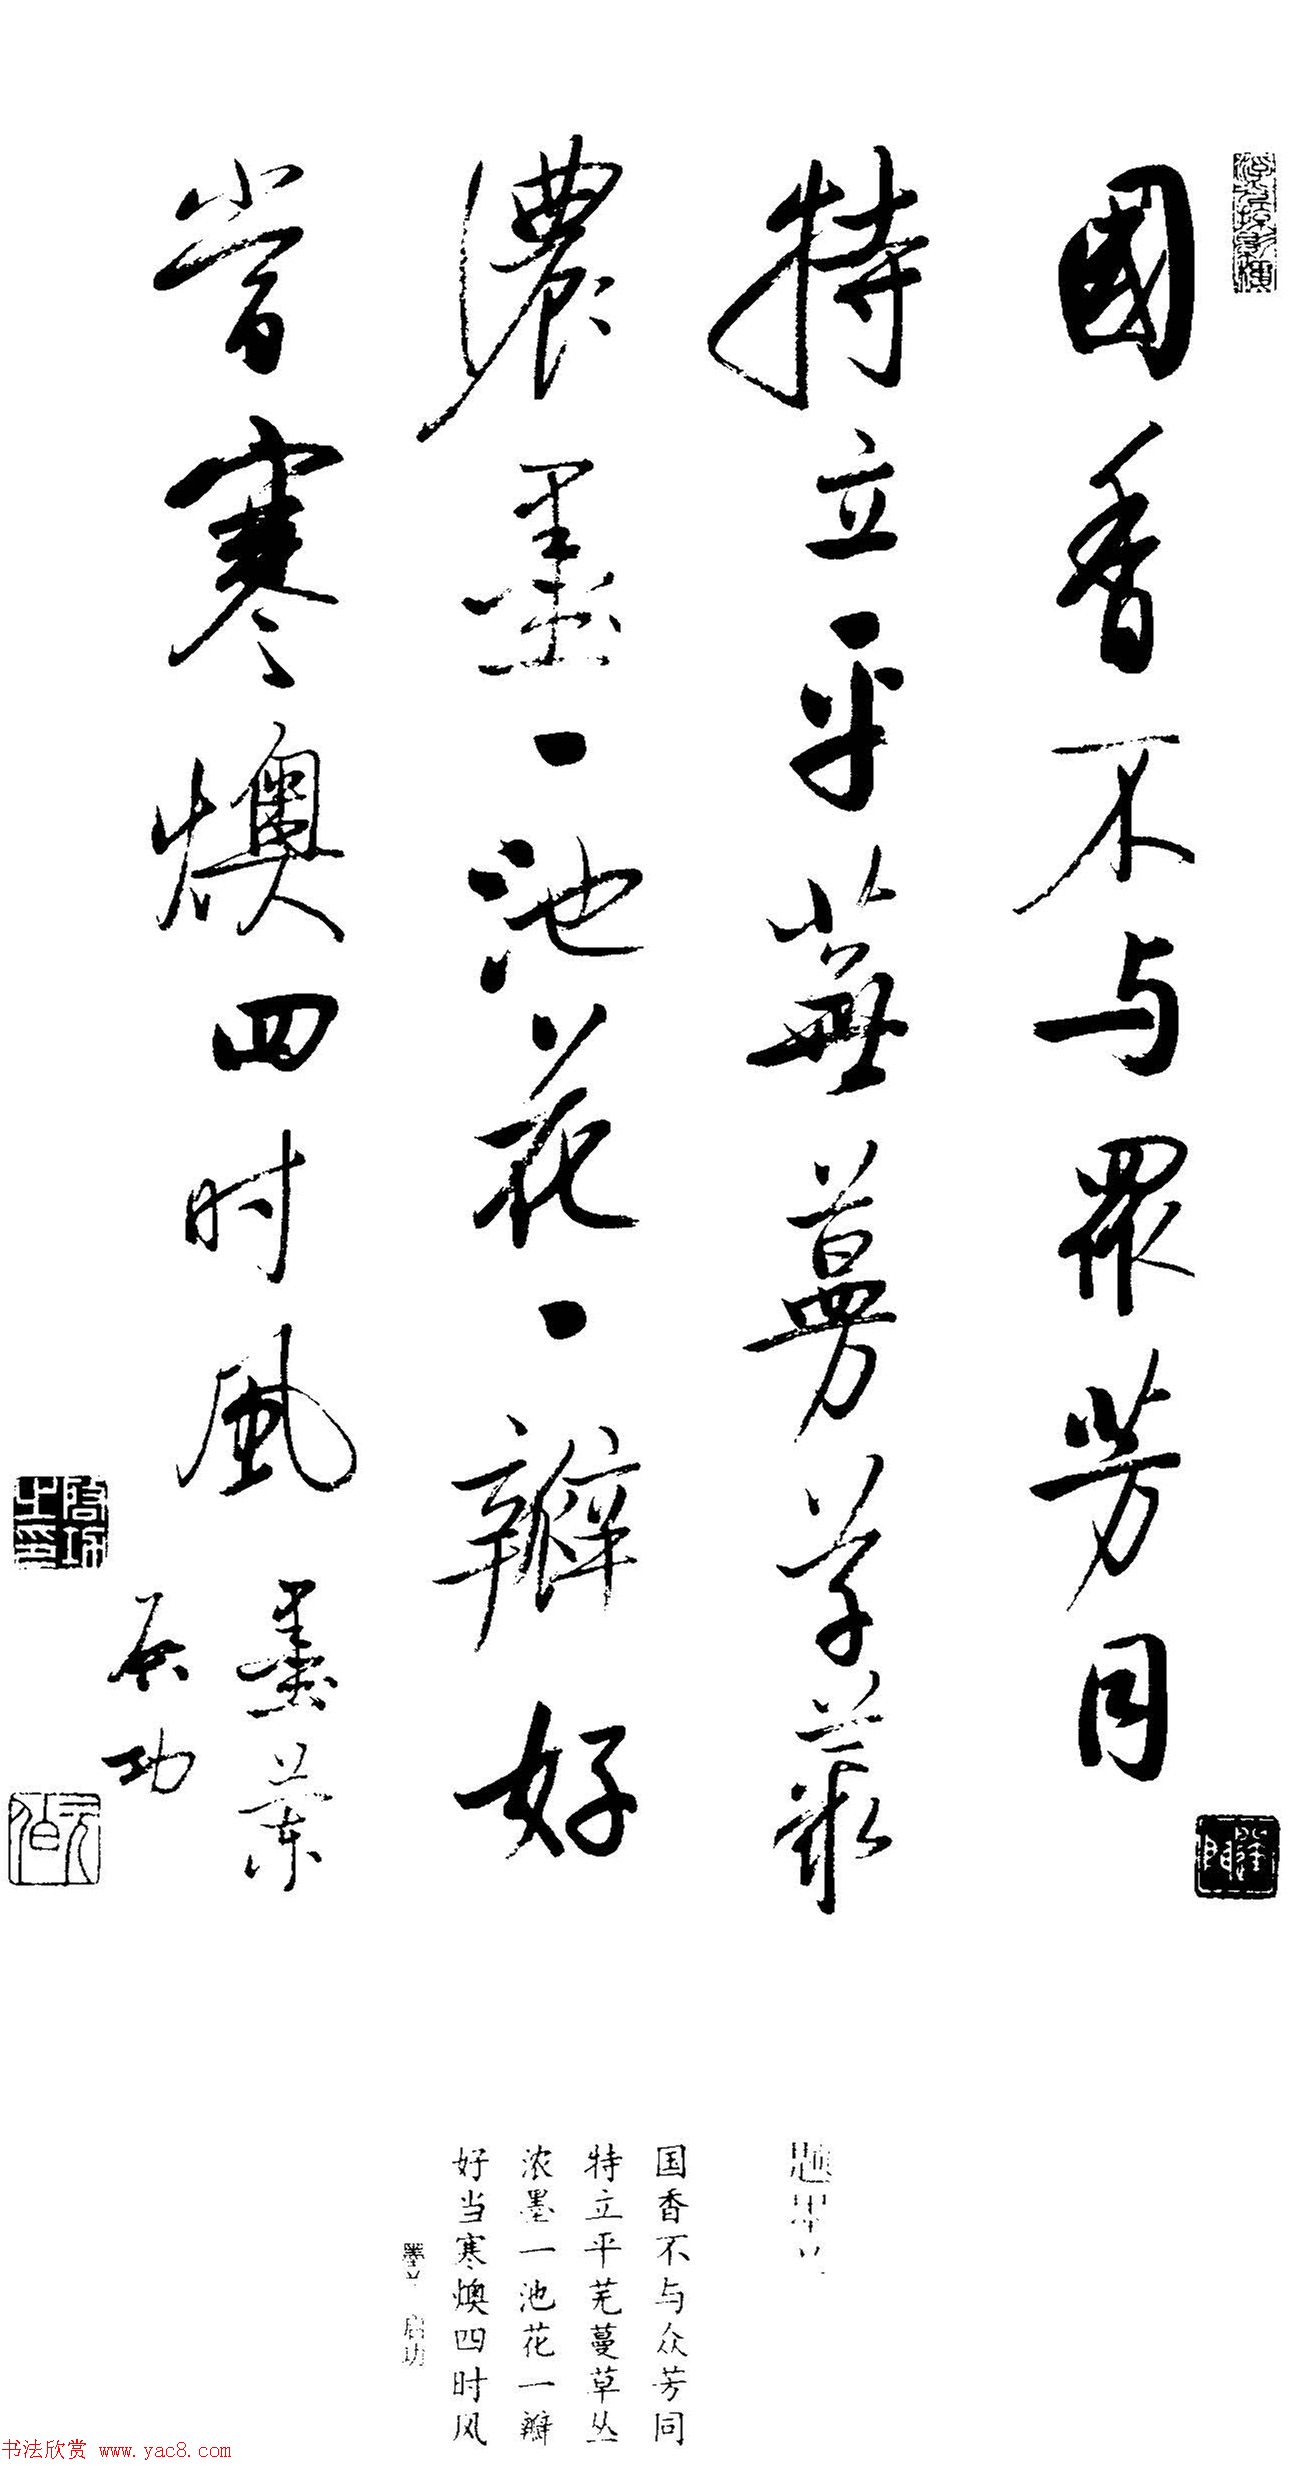 國香不与眾芳同
特立平蕪蔓草叢
濃墨一池花一瓣好
當寒燠四时風
墨蘭
启功
启功之印
元白
题墨兰
国香不与众芳同
特立平芜蔓草丛
浓墨一池花一瓣
好当寒燠四时风
墨兰 启功
书法欣赏 www.yac8.com